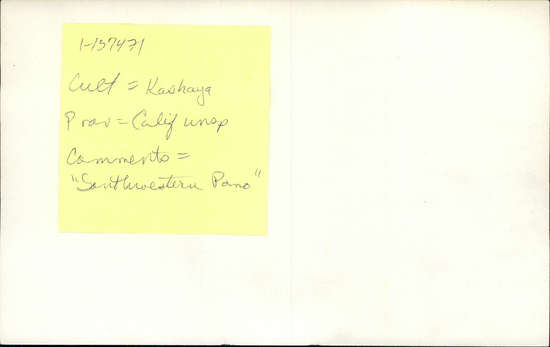 1-157471
Cult = Kashaya
Prov = Calif unsp
Comments =
"Southwestern Pomo"